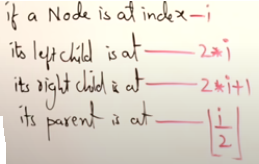 if a Node is at index – i
its left child is at — 2*i
its right child is at — 2*i+1
its parent is at — ⌊i/2⌋